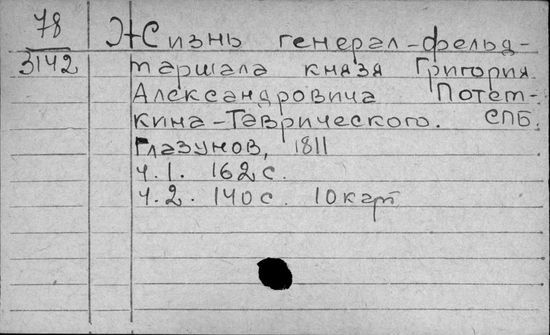 78
3142
Жизнь генерал-фельд-
маршала князя Григория
Александровича Потем-
кина-Таврического. СПБ.
Глазунов, 1811
Ч.1. 162 с.
Ч.2. 140 с. 10 карт